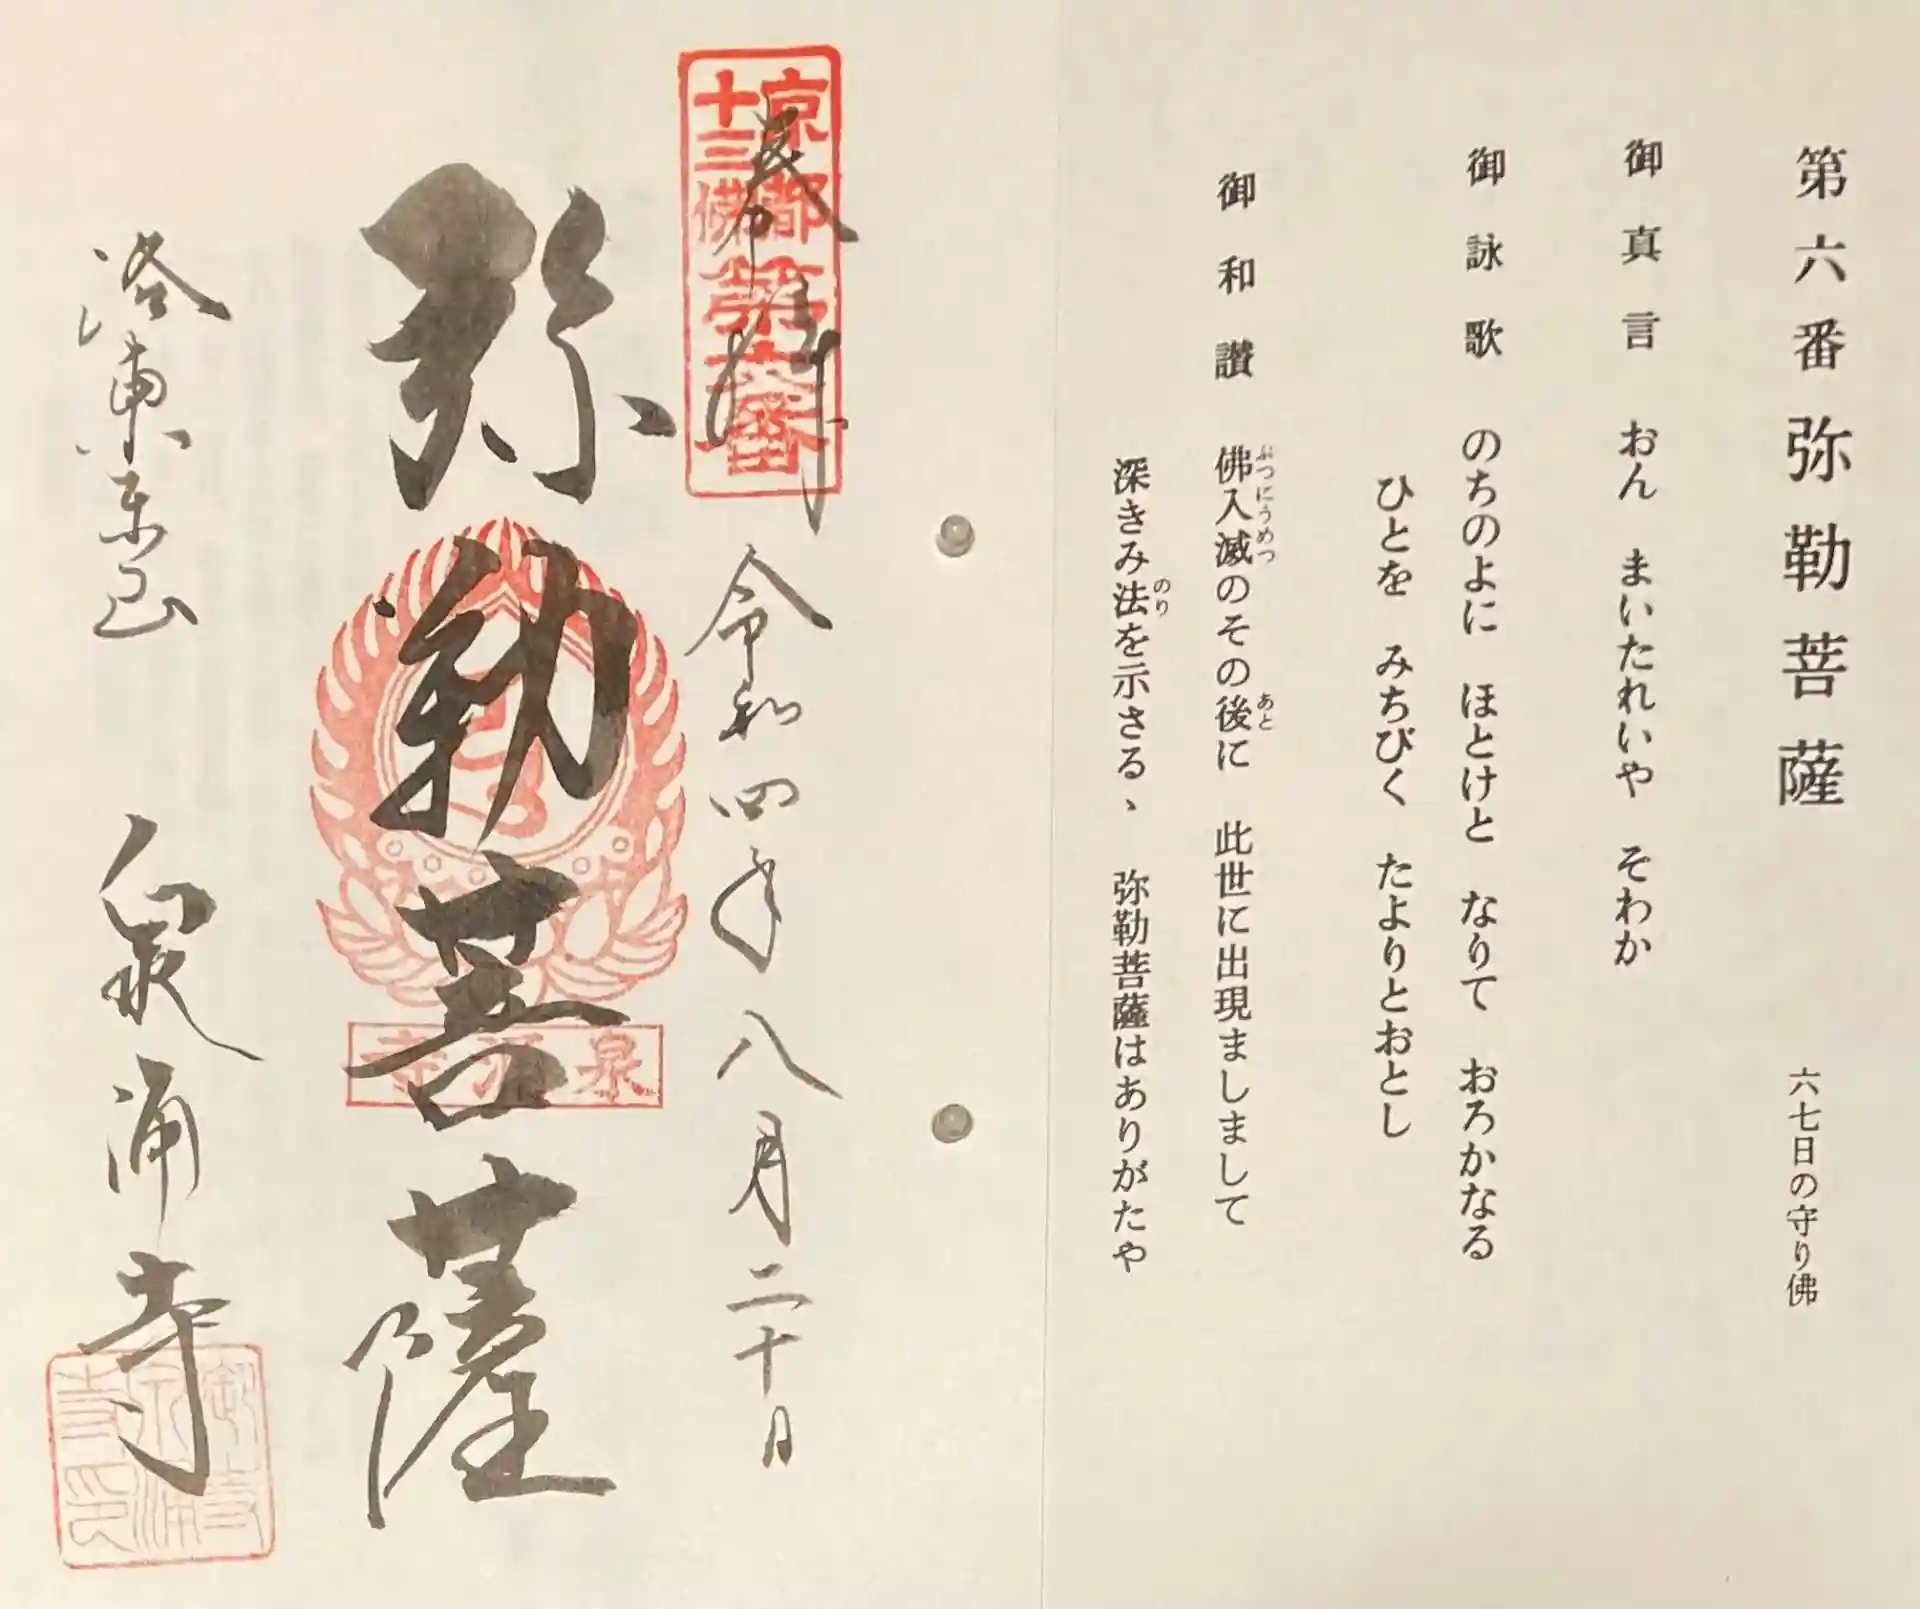 第六番弥勒菩薩 六七日の守り佛
御真言 おん まいたれいや そわか
御詠歌 のちのよに ほとけと なりて おろかなる
ひとを みちびく たよりとおとし
御和讃 佛入滅のその後に 此世に出現ましまして
ぶつにうめつ
あと
深きみ法を示さる、 弥勒菩薩はありがたや
のり
京都
十三佛
第六番
奉拝
令和四年八月二十日
弥勒菩薩
泉涌寺
洛東東山 泉涌寺